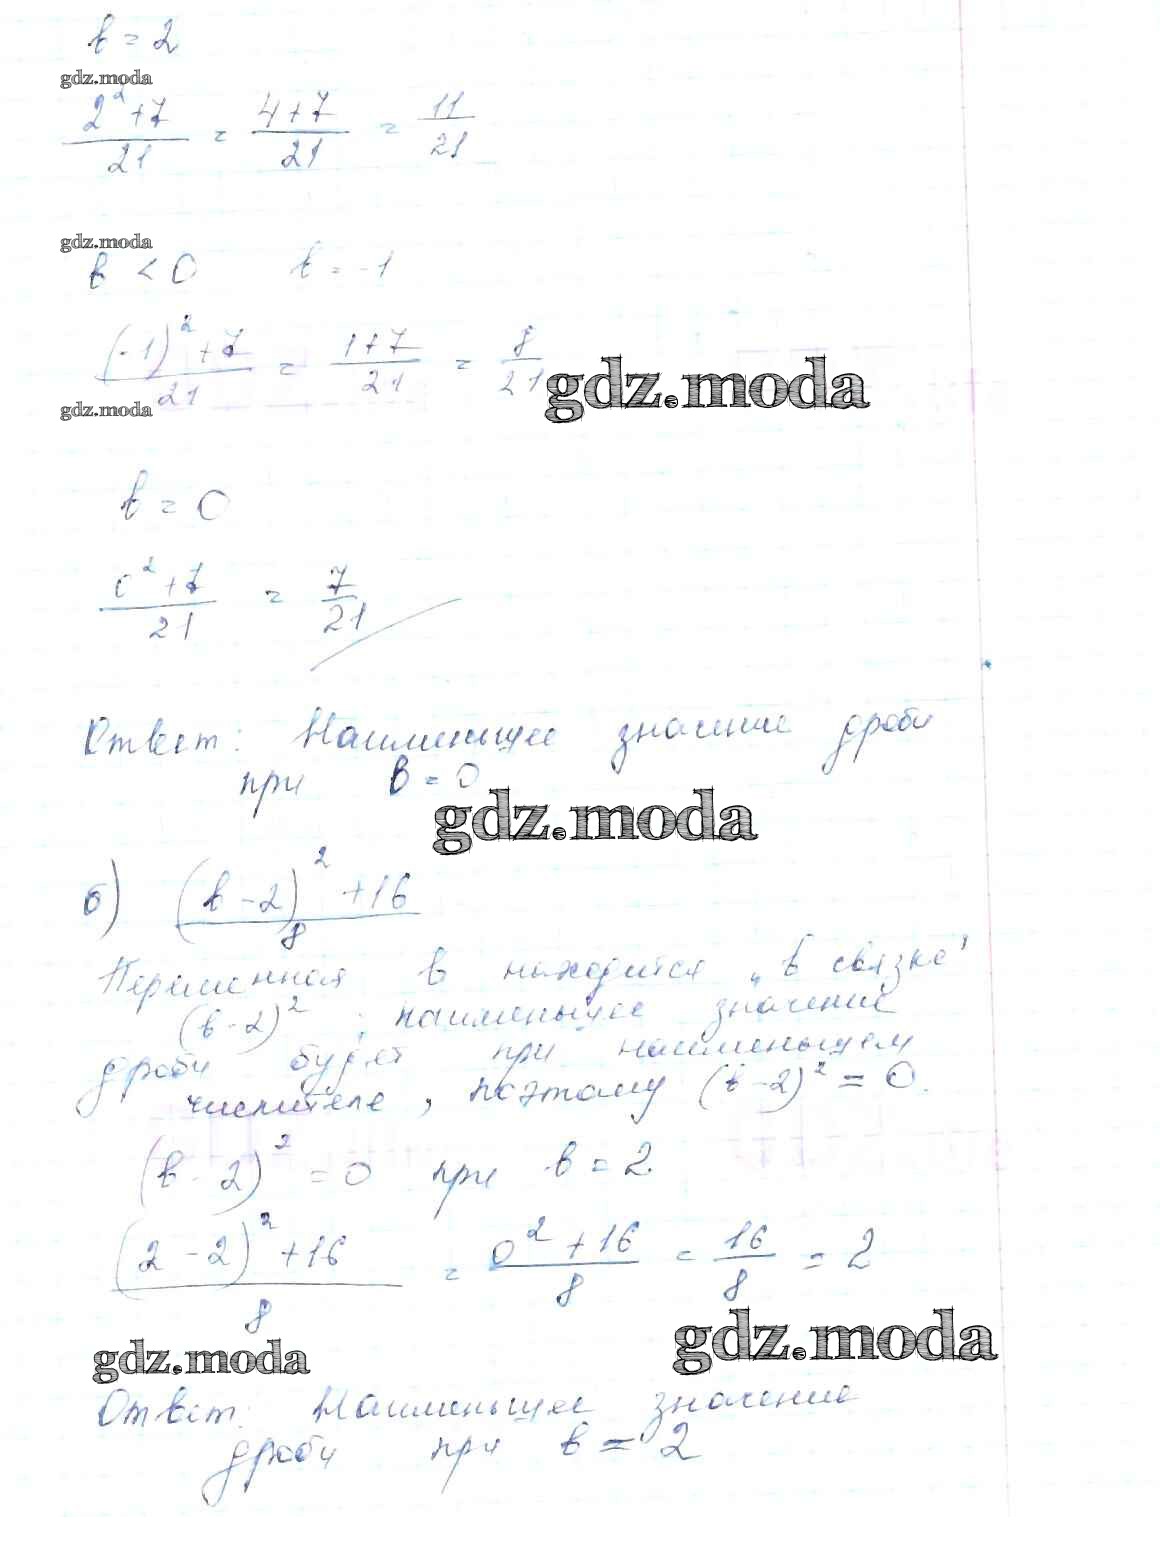 в = 2
gdz.moda
(2² + 7)/21 = (4 + 7)/21 = 11/21
gdz.moda
в < 0 в = -1
((-1)² + 7)/21 = (1 + 7)/21 = 8/21
gdz.moda
gdz.moda
в = 0
(0² + 7)/21 = 7/21
Ответ: Наименьшее значение дроби
при в = 0
gdz.moda
б) ((в - 2)² + 16)/8
Переменная в находится „в связке"
(в - 2)², наименьшее значение
дроби будет при наименьшем
числителе, поэтому (в - 2)² = 0.
(в - 2)² = 0 при в = 2.
((2 - 2)² + 16)/8 = (0² + 16)/8 = 16/8 = 2
gdz.moda
gdz.moda
Ответ: Наименьшее значение
дроби при в = 2